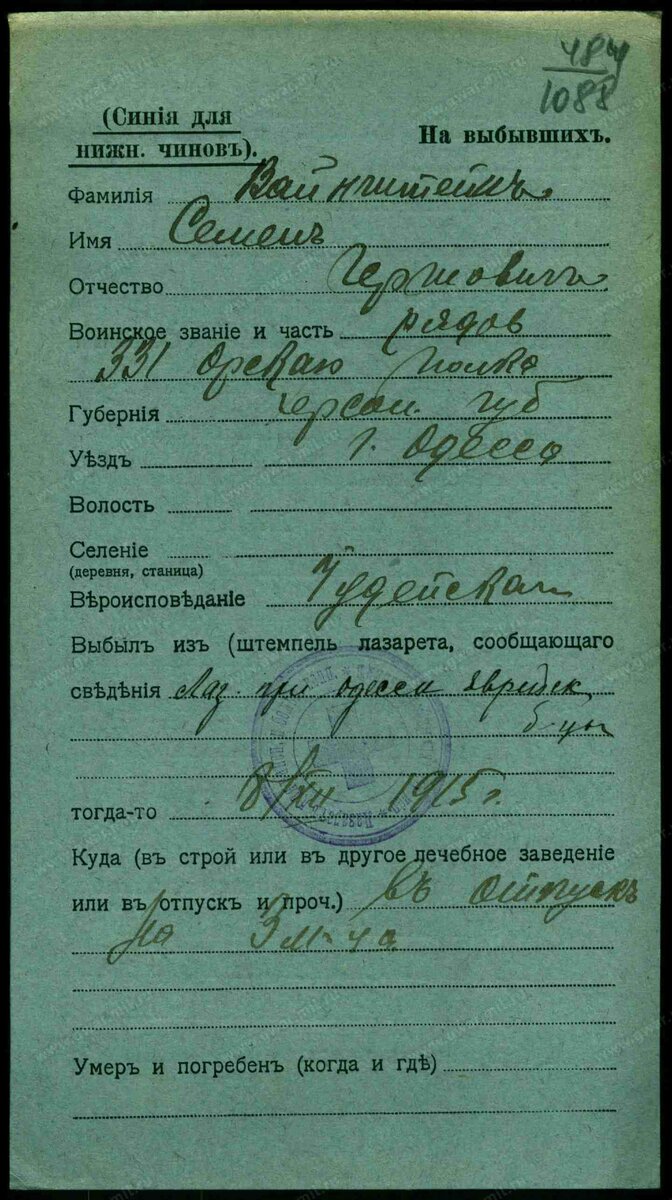 484
1088
(Синія для
нижн. чиновъ).
На выбывшихъ.
Фамилія Вайнштейнъ
Имя Семенъ
Отчество Гершовичъ
Воинское званіе и часть рядов
331 Орскаго полка
Губернія Херсон. губ
Уѣздъ г. Одесса
Волость
Селеніе
(деревня, станица)
Вѣроисповѣданіе Іудейская
Выбылъ изъ (штемпель лазарета, сообщающаго
свѣдѣнія Лаз. при Одесск Еврейск
б-цы
тогда-то 8/XII 1915 г.
Куда (въ строй или въ другое лечебное заведеніе
или въ отпускъ и проч.) въ отпускъ
на 3 м-ца
Умеръ и погребенъ (когда и гдѣ)